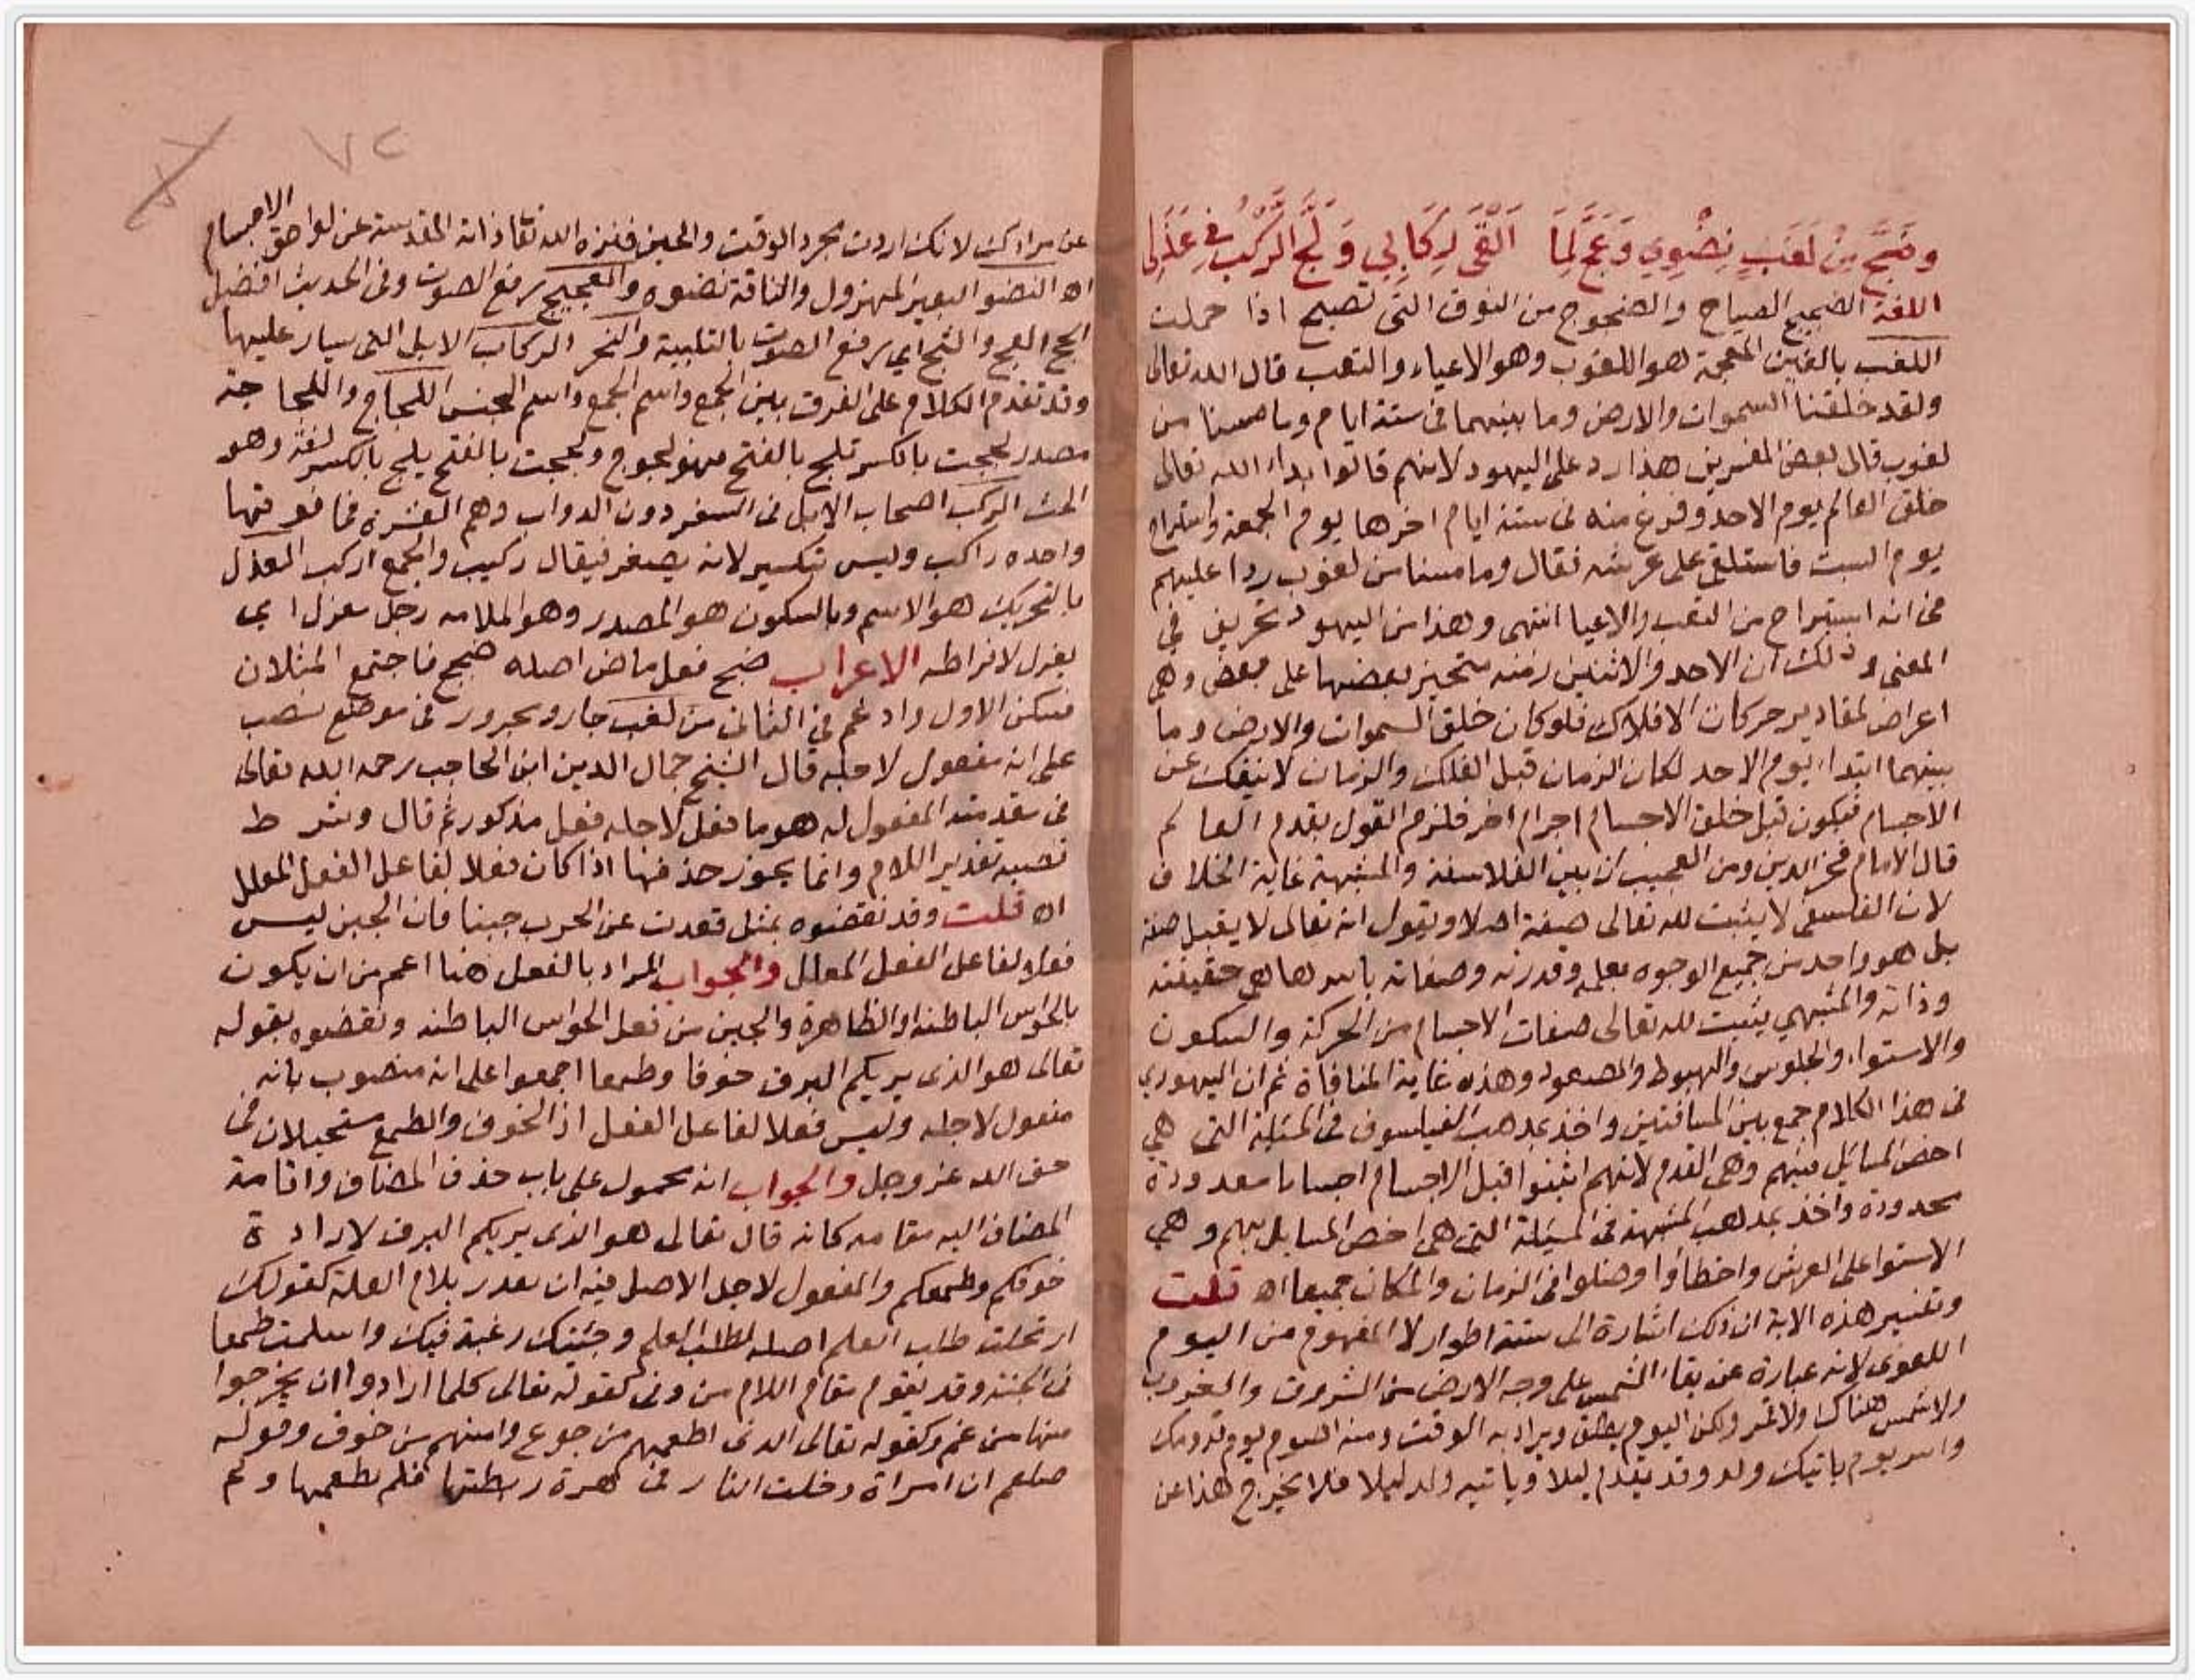 وضج من لغب نضوي وعج لما ألقى ركابي ولج الركب في عذلي
اللغة الضجيج الصياح والضجوج من النوق التي تصيح اذا حملت
اللغب بالغين المعجمة هو اللغوب وهو الاعياء والتعب قال الله تعالى
ولقد خلقنا السموات والارض وما بينهما في ستة ايام وما مسنا من
لغوب قال بعض المفسرين هذا رد على اليهود لانهم قالوا بدا الله تعالى
خلق العالم يوم الاحد وفرغ منه في ستة ايام اخرها يوم الجمعة واستراح
يوم السبت فاستلقى على عرشه فقال وما مسنا من لغوب ردا عليهم
في انه استراح من التعب والاعيا انتهى وهذا من اليهود تحريف في
المعنى وذلك ان الاحد والاثنين ازمنه متحيز بعضها على بعض وهي
اعراض لمقادير حركات الافلاك فلو كان خلق السموات والارض وما
بينهما ابتداء يوم الاحد لكان الزمان قبل الفلك والزمان لا ينفك عن
الاجسام فيكون قبل خلق الاجسام اجرام اخر فلزم القول بقدم العالم
قال الامام فخر الدين ومن العجيب ان بين الفلاسفة والمشبهة غاية الخلاف
لان الفلسفي لا يثبت لله تعالى صفة اصلا ويقول انه تعالى لا يقبل صفة
بل هو واحد من جميع الوجوه بعلمه وقدرته وصفاته باسرها هي حقيقته
وذاته والمشبهي يثبت لله تعالى صفات الاجسام من الحركة والسكون
والاستواء والجلوس والهبوط والصعود وهذه غاية المنافاة ثم ان اليهودي
في هذا الكلام جمع بين المسافتين واخذ بمذهب الفيلسوف في المسئلة التي هي
اخص المسائل فيهم وهي القدم لانهم اثبتوا قبل الاجسام اجساما معدودة
محدودة واخذ بمذهب المشبهة في المسئلة التي هي اخص المسايل بهم وهي
الاستوا على العرش واخطاوا وضلوا في الزمان والمكان جميعا اه قلت
وتفسير هذه الاية ان ذلك اشارة الى ستة اطوار لا المفهوم من اليوم
اللغوي لانه عبارة عن بقاء الشمس على وجه الارض من الشروق والغروب
ولا شمس هناك ولا قمر ولكن اليوم يطلق ويراد به الوقت ومنه الصوم يوم قدومك
يوم ياتيك ولد وقد يقدم ليلا وياتيه ولد ليلا فلا يخرج هذا عن
٧٢
عن مرادك لانك اردت مجرد الوقت والحين فنزه الله تعا ذاته المقدسة عن لواحق الاجسام
اه النضو البعير المهزول والناقة نضوه والعجيج رفع الصوت وفي الحديث افضل
الحج العج والثج اي رفع الصوت بالتلبية والنحر الركاب الابل التي سيار عليها
وقد تقدم الكلام على الفرق بين الجمع واسم الجمع واسم الجنس اللجاج واللجاجة
مصدر لججت بالكسر تلج بالفتح فهو لجوج ولججت بالفتح يلج بالكسر لغة وهو
الحث الركب اصحاب الابل في السفر دون الدواب وهم العشرة فما فوقها
واحده راكب وليس تكسير لانه يصغر فيقال ركيب والجمع اركب العذل
بالتحريك هو الاسم وبالسكون هو المصدر وهو الملامه رجل معزل اي
يعزل لافراطه الاعراب ضج فعل ماض اصله ضجج فاجتمع المثلان
فسكن الاول وادغم في الثاني من لغب جار ومجرور في موضع نصب
على انه مفعول لاجله قال الشيخ جمال الدين ابن الحاجب رحمه الله تعالى
في مقدمته المفعول له هو ما فعل لاجله فعل مذكور ثم قال وشرط
نصبه تقدير اللام وانما يجوز حذفها اذا كان فعلا لفاعل الفعل المعلل
اه قلت وقد نقضوه بمثل قعدت عن الحرب جبنا فان الجبن ليس
فعلا لفاعل الفعل المعلل والجواب المراد بالفعل هنا اعم من ان يكون
بالحواس الباطنه او الظاهرة والجبن من فعل الحواس الباطنه ونقضوه بقوله
تعالى هو الذي يريكم البرق خوفا وطمعا اجمعوا على انه منصوب بانه
مفعول لاجله وليس فعلا لفاعل الفعل اذ الخوف والطمع مستحيلان في
حق الله عز وجل والجواب انه محمول على باب حذف المضاف واقامة
المضاف اليه مقامه كانه قال تعالى هو الذي يريكم البرق لارادة
خوفكم وطمعكم والمفعول لاجله الاصل فيه ان يقدر بلام العلة كقولك
ارتحلت طلب العلم اصله لطلب العلم وجئتك رغبة فيك واسلمت طمعا
في الجنة وقد يقوم مقام اللام من وفي كقوله تعالى كلما ارادوا ان يخرجوا
منها من غم وكقوله تعالى الذي اطعمهم من جوع وامنهم من خوف وقوله
صلعم ان امراة دخلت النار في هرة ربطتها فلم تطعمها ولم